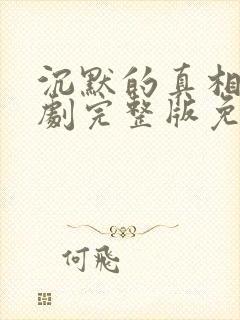 沉默的真相
劇完整版免
何飛